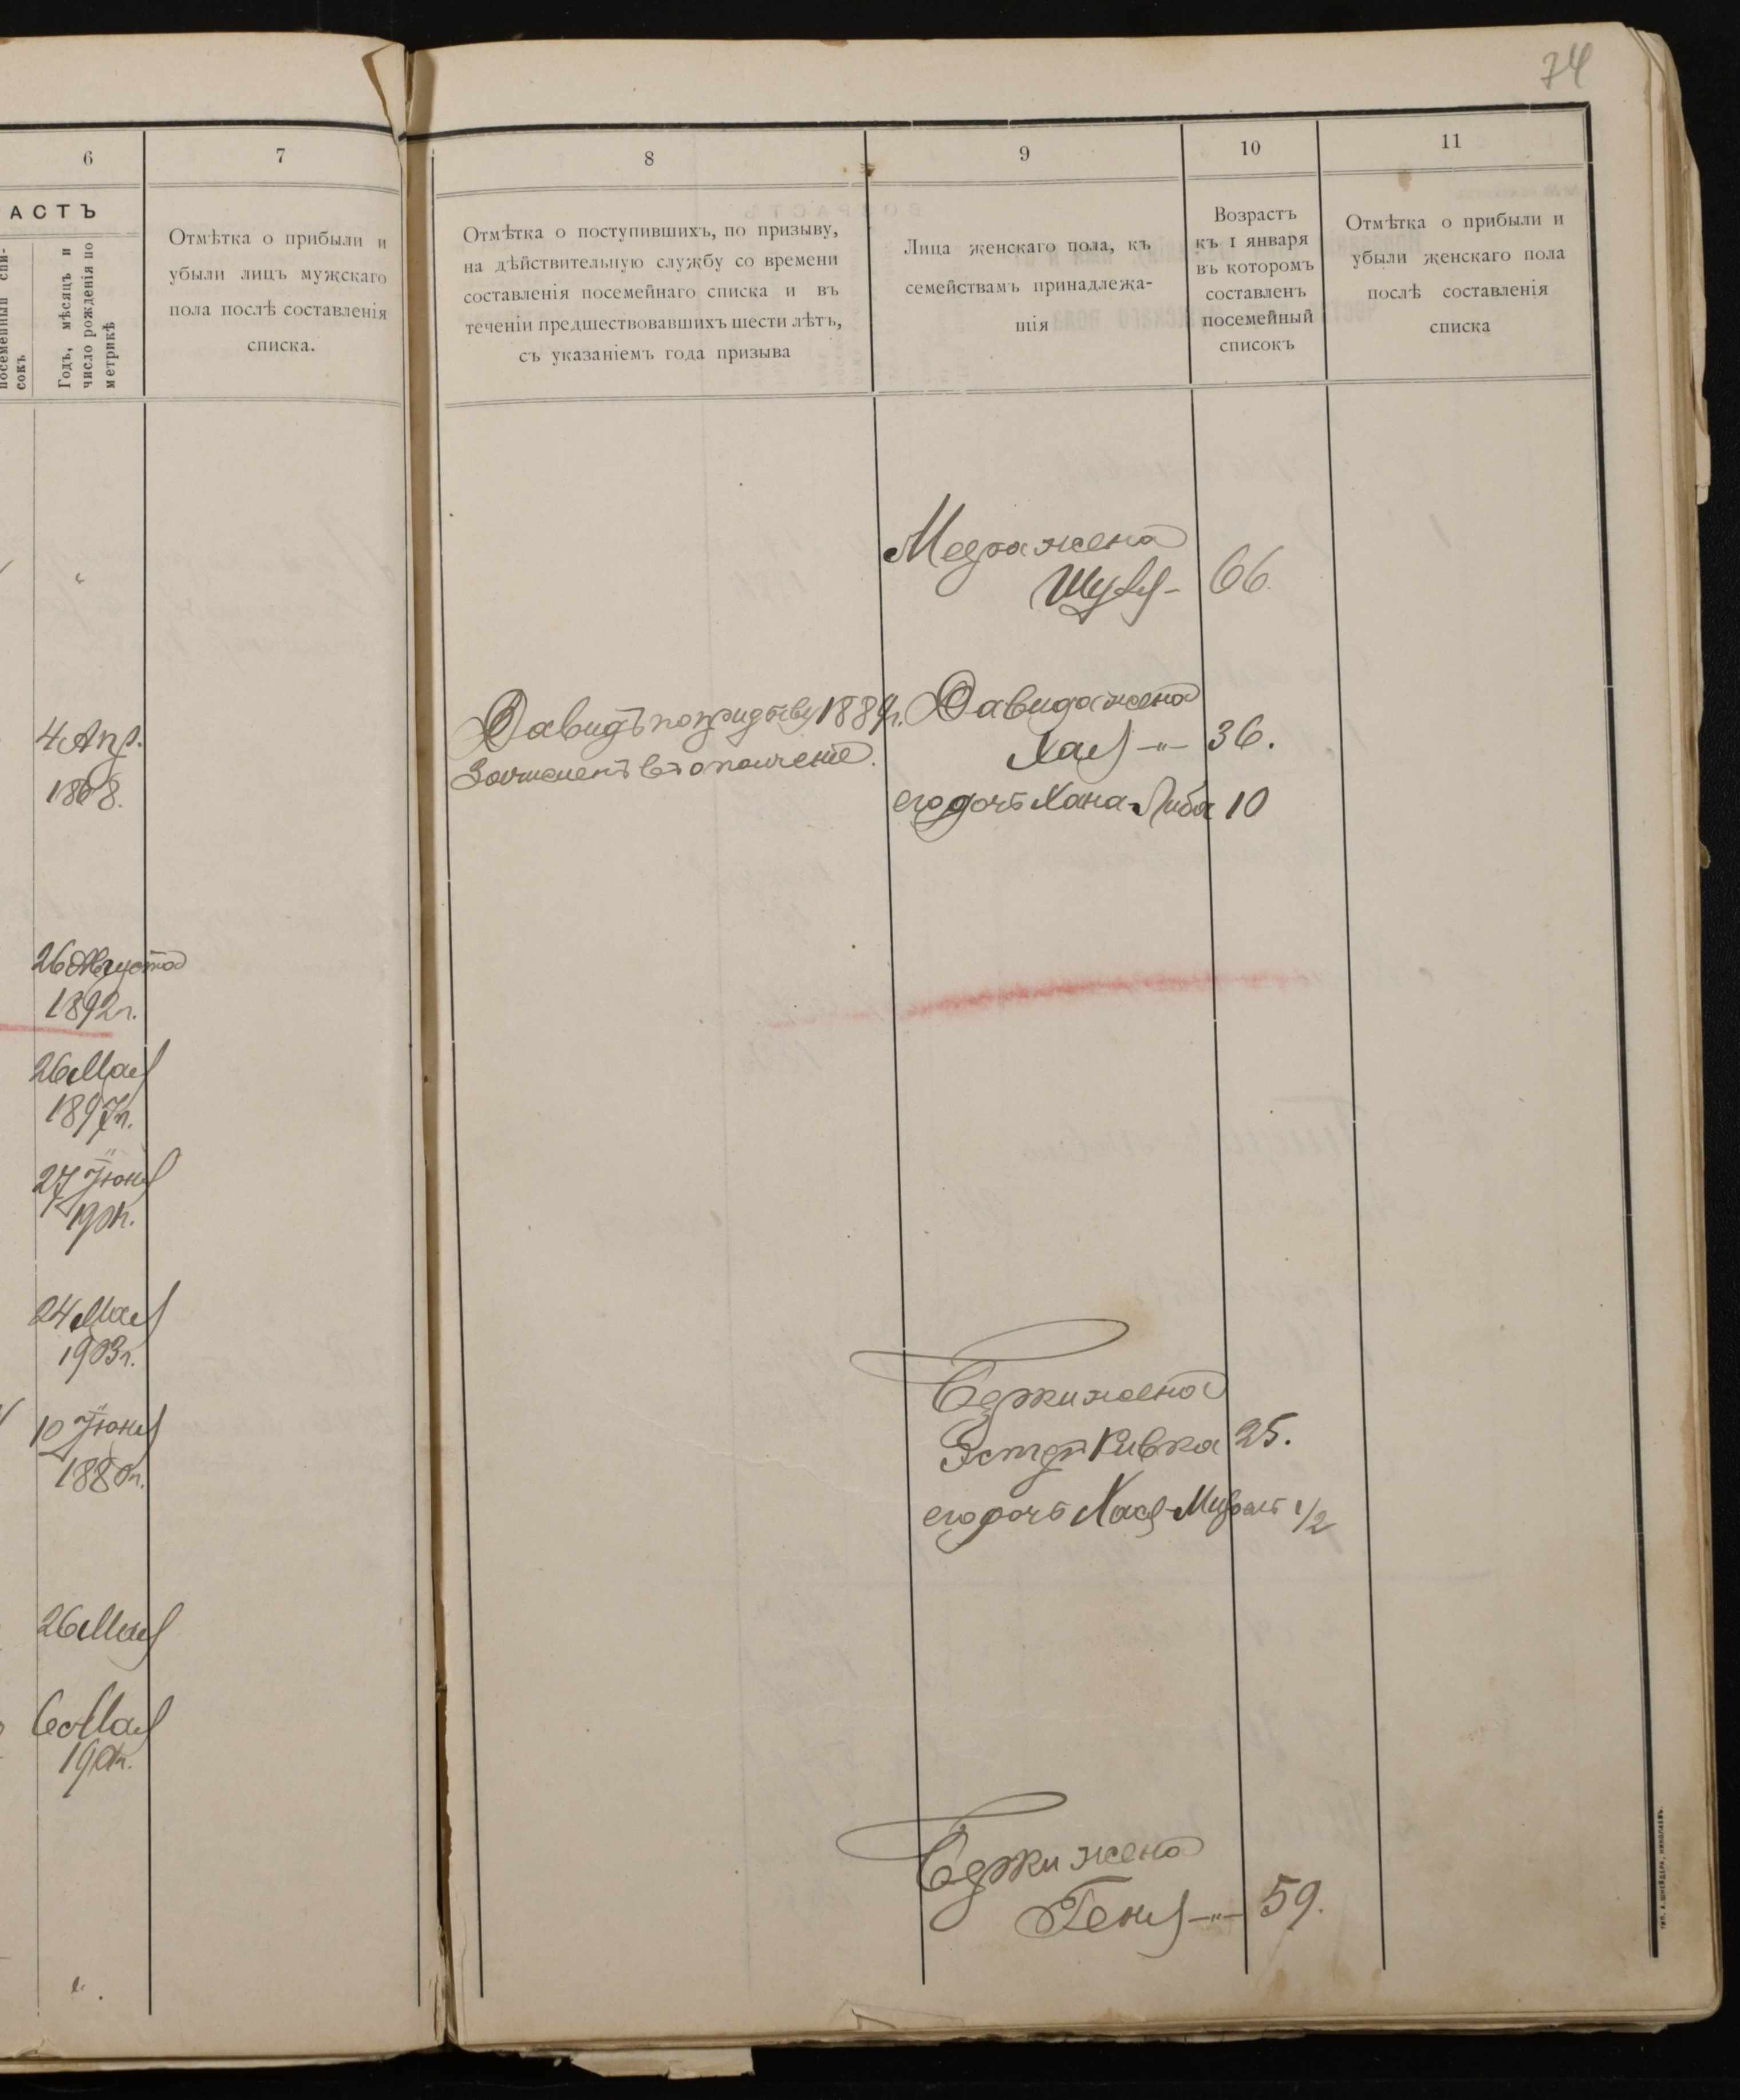 74
6
7
8
9
10
11
АСТЪ
посемейный спи-
сокъ
Годъ, мѣсяцъ и
число рожденія по
метрикѣ
Отмѣтка о прибыли и
убыли лицъ мужскаго
пола послѣ составленія
списка.
Отмѣтка о поступившихъ, по призыву,
на дѣйствительную службу со времени
составленія посемейнаго списка и въ
теченіи предшествовавшихъ шести лѣтъ,
съ указаніемъ года призыва
Лица женскаго пола, къ
семействамъ принадлежа-
щія
Возрастъ
къ 1 января
въ которомъ
составленъ
посемейный
списокъ
Отмѣтка о прибыли и
убыли женскаго пола
послѣ составленія
списка
4 Апр.
1868.
26 Августа
1892 г.
26 Мая
1897 г.
27 Іюня
24 Мая
1903 г.
10 Іюня
1880 г.
26 Мая
6 Мая
Давидъ по призыву 1889 г.
Зачисленъ въ ополченіе.
жена
66.
Давида жена
Хая -"- 36.
его дочь Хана-Либа 10
жена
Эстръ Ривка 25.
его дочь Хая- 1/2
жена
Геня -"- 59.